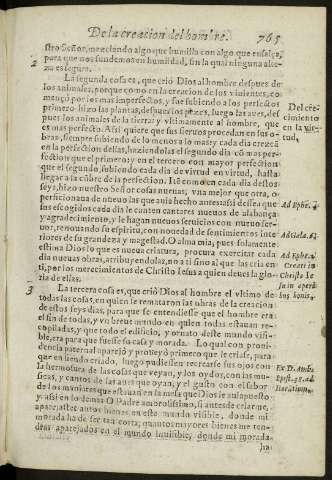 De la creacion del hombre. 765
stro Señor, mezclando algo que humilla con algo que ensalçe,
para que nos fundemos en humildad, sin la qual ninguna alteza es segura.
2 La segunda cosa es, que crió Dios al hombre despues de
los animales, porque como en la creacion de los vivientes, començó
por los mas imperfectos, y fue subiendo a los perfectos
primero hizo las plantas, despues los peces, luego las aves, despues
los animales de la tierra: y vltimamente al hombre, que
es mas perfecto. Assi quiere que sus siervos procedan en sus obras,
siempre subiendo de lo menos a lo mas: y cada dia crezcã
en la perfection dellas, haziendo las el segundo dia cõ mas perfection
que el primero: y en el tercero con mayor perfection
que el segundo, subiendo cada dia de virtud en virtud, hasta
llegar a la cũbre de la perfection.
seys, hizo nuestro Señor cosas nuevas,
de nuevo las que avia hecho antes: assi dessea que
sus escogidos cada dia le canten cantares nuevos de alabança
y agradecimiento, y le hagan nuevos servicios con nuevo fervor,
renovando su espiritu, con novedad de sentimientos interiores
de su grandeza y magestad. O alma mia, pues solamente
estima Dios lo que es nueva criatura, procura exercitar cada
dia nuevas obras, atribuyendolas, no a ti
ti, por los merecimientos de Christo Iesus a quien deves la gloria de ellas.
Del crecimiento
en la virtud.
Ad Ephe. 4
Ad Gala. 6.
Ad Ephe.
Creati in
Christo Iesu
in operibus
bonis.
3 La tercera cosa es, que crió Dios al hombre el vltimo de
todas las cosas, en quien se remataron las obras de la creacion
de estos seys dias, para que se entendiesse que el hombre era
el fin de todas, y vn breve mundo en quien todas estavan recopiladas,
y que todo el edificio, y ornato deste mundo visible,
era para que fuesse su casa y morada. Lo qual con providencia
paternal aparejó y proveyó primero que le criase, para
que en siendo criado, luego pudiessen recrearse sus ojos con
la hermosura de las cosas que veyan, y los oydos, con las musicas,
y cantos de las aves que oyan, y el gusto con el sabor
de los manjares que estavan en la mesa
y assi en lo demas. O Padre amorosissimo, si antes de criarme,
aparejastes tantos bienes en este mundo visible, donde mi
morada ha de ser tan corta; quantos mayores bienes me tendreis
aparejados en el mundo invisible, donde mi morada
Ex D. Amb.
ha